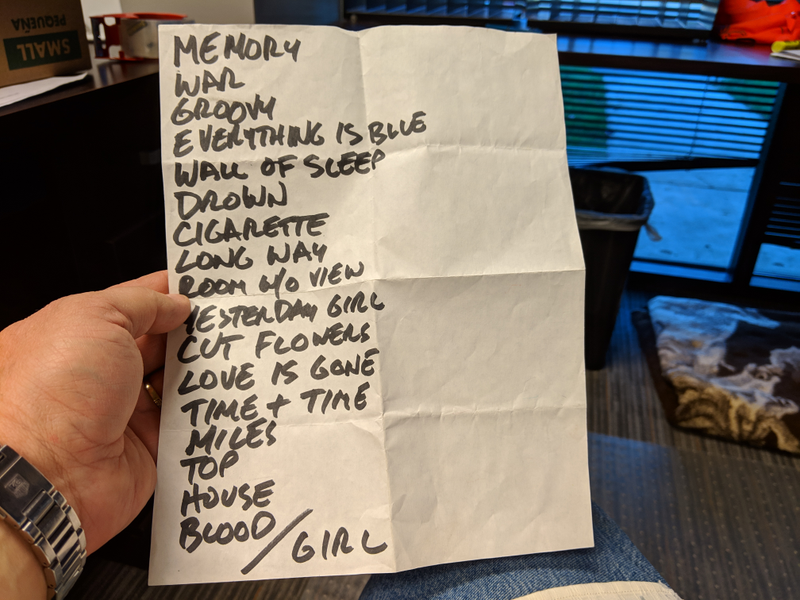 SMALL
PEQUEÑA
MEMORY
WAR
GROOVY
EVERYTHING IS BLUE
WALL OF SLEEP
DROWN
CIGARETTE
LONG WAY
ROOM W/O VIEW
YESTERDAY GIRL
CUT FLOWERS
LOVE IS GONE
TIME + TIME
MILES
TOP
HOUSE
BLOOD / GIRL